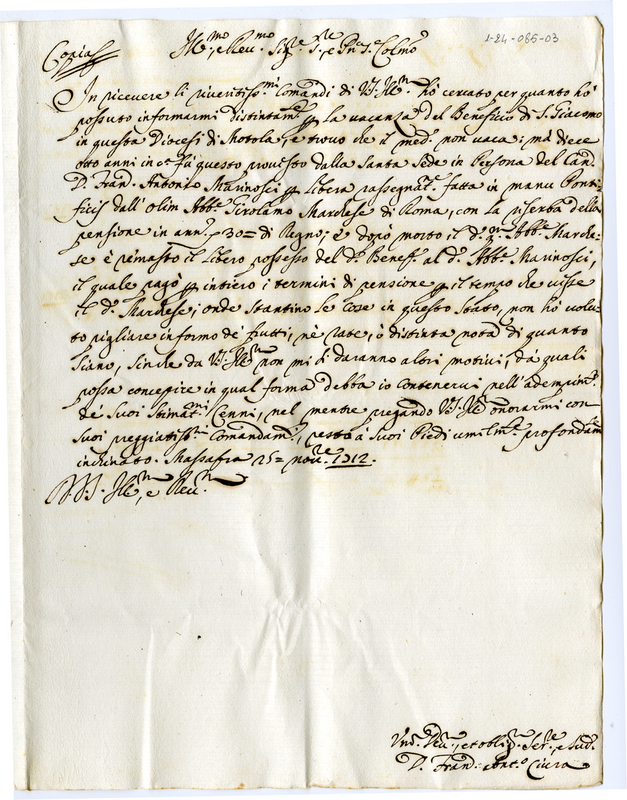 1-24-065-03
Copia
Ill.mo e Reu.mo Sig.re S.re e Pn'e Colmo
In riceuere li riueritiss.mi Comandi di V.S. Ill.ma hò cercato per quanto hò
possuto informarmi distintam.te la vacanza del Beneficio di S. Giacomo
in questa Diocesi di Motola, e trouo che il med.o non vaca; mà diece
otto anni in c.a fù questo prouisto dalla Santa Sede in Persona del Can.
D. Fran. Antonio Marinosci libera rassegnat. fatta in manu Ponti-
ficis dall'olim Abb.e Girolamo Marchese di Roma, con la riserba della
pensione in ann. 30= di Regno; e dopò morto il d.o Abb.e Marche-
se è rimasto il libero possesso del d.o Benef. al d.o Abb.e Marinosci,
il quale pagò intiero i termini di pensione il tempo che uisse
il d.o Marchese; onde stantino le cose in questo stato, non hò uolu-
to pigliare informo de' frutti, nè rate, ò distinta nota di quanto
siano, sinche da V.S. Ill.ma non mi si daranno altri motiui, da quali
possa concepire in qual forma debba io contenerui nell'adempim.to
de' suoi stimat.mi Cenni, nel mentre pregando V.S. Ill.ma onorarmi con
suoi preggiatiss.mi Comandam.ti, resto à suoi Piedi umilm.te profondam.te
inchinato. Massafra 25= nou.re 1712.
D. V.S. Ill.ma e Reu.ma
Um. Deu. et obblig. Ser.re e Sud.
D. Fran. Ant.o Ciura